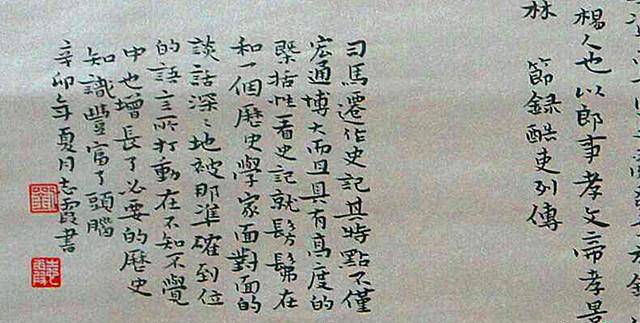 楊人也以郎事孝文帝孝景
林 節錄酷吏列傳
司馬遷作史記其特點不僅
宏通博大而且具有高度的
槩括性看史記就髣髴在
和一個歷史學家面對面的
談話深〻地被那準確到位
的語言所打動在不知不覺
中也增長了必要的歷史
知識豐富了頭腦
辛卯年夏月志霞書